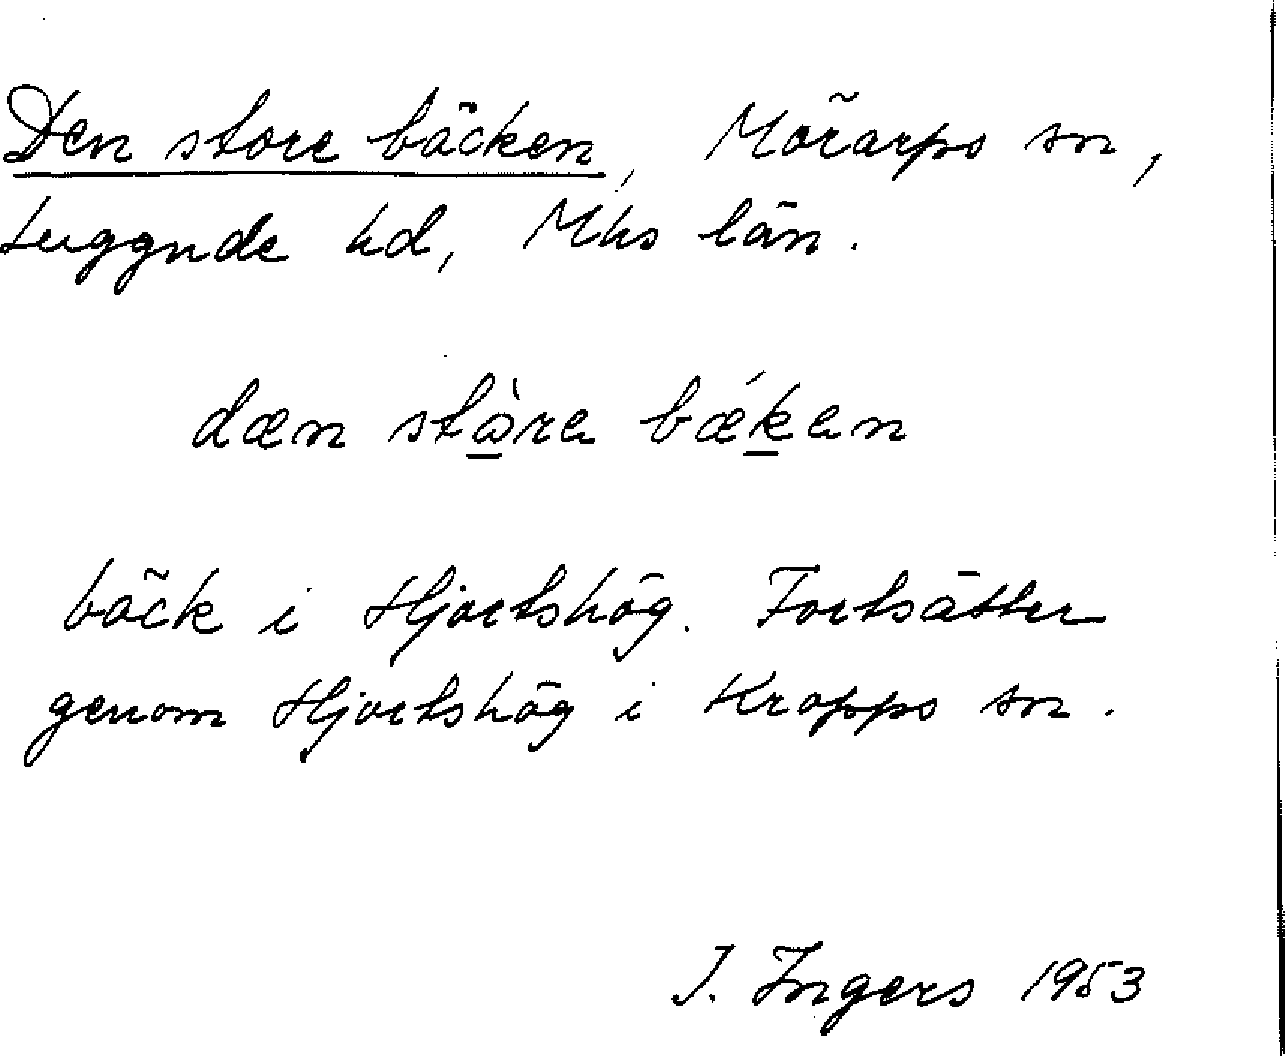 Den store bäcken, Mörarps sn,
Luggude hd, Mhs län.
dæn stòre bǽken
bäck i Hjortshög. Fortsätter
genom Hjortshög i Kropps sn.
I. Ingers 1953